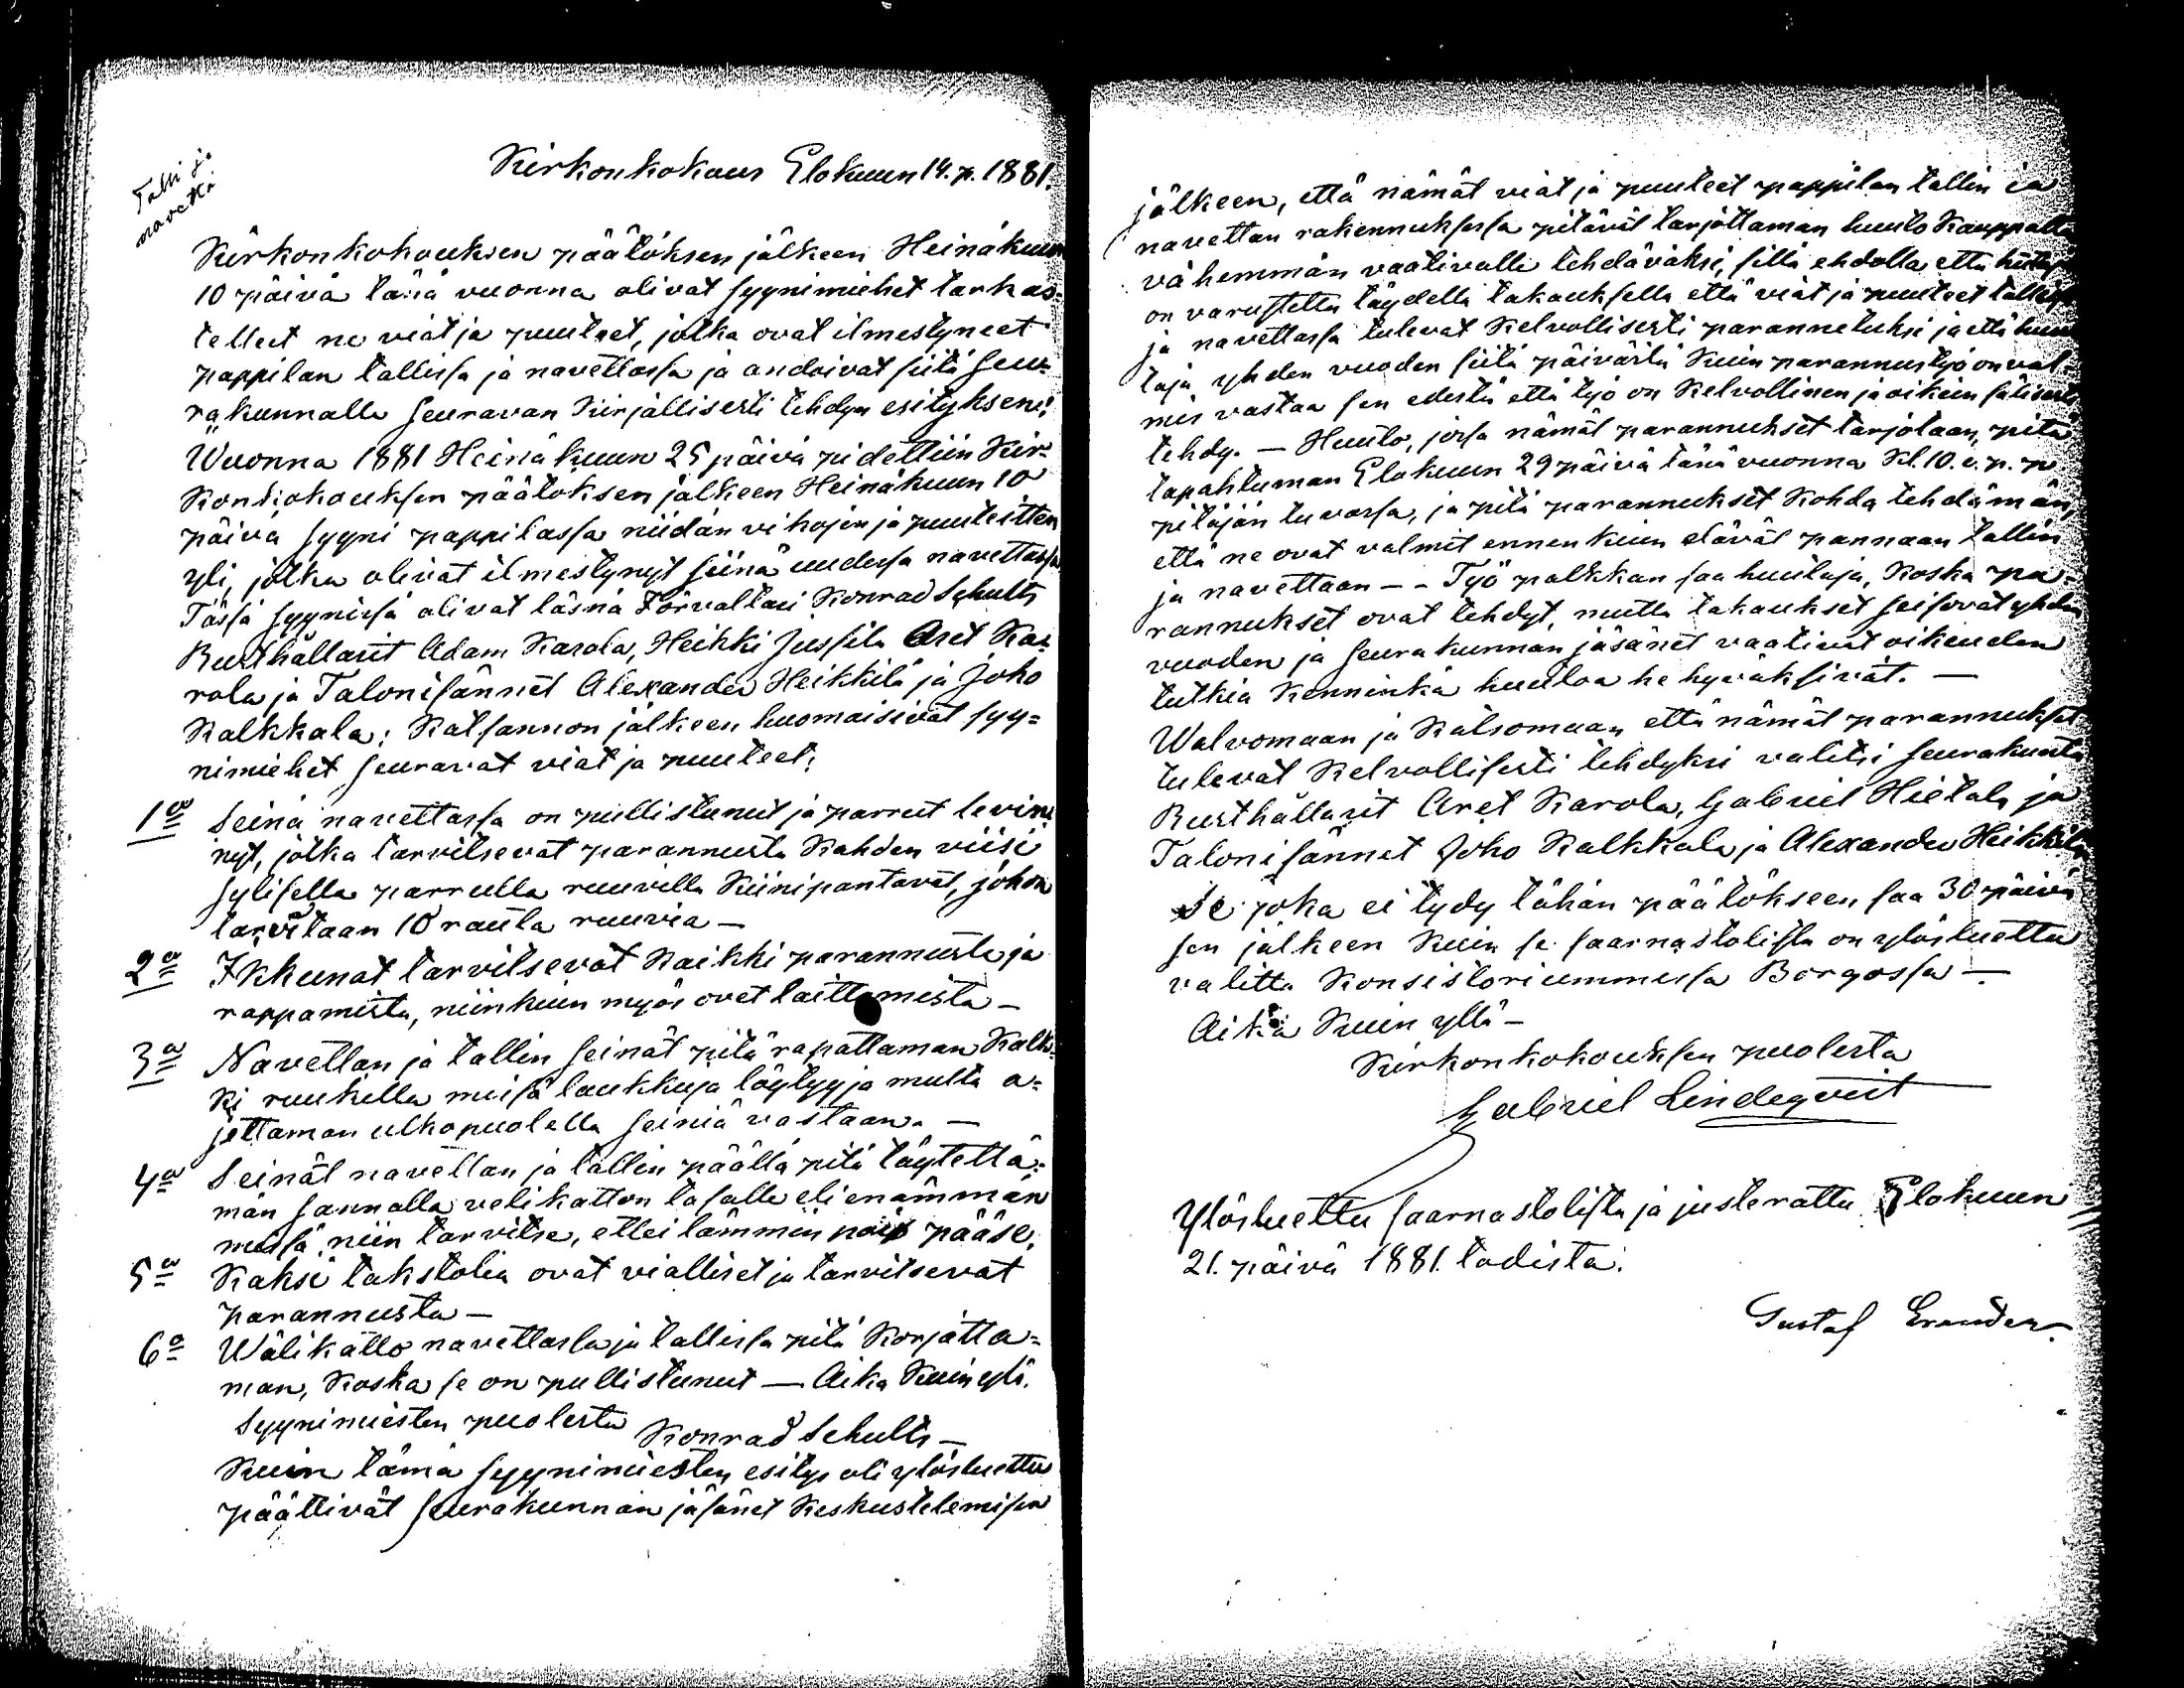 Talli ja
navetta
Kirkonkokous Elokuun 14. p. 1881.
Kirkonkokouksen päätöksen jälkeen Heinäkuun
10 päivä tänä vuonna olivat syynimiehet tarkas-
telleet ne viat ja puuteet, jotka ovat ilmestyneet
pappilan tallissa ja navettassa ja andoivat siitä Seu-
rakunnalle seuravan Kirjallisesti tehdyn esityksen:
"Wuonna 1881 Heinäkuun 25 päivä pidettiin Kir-
konkokouksen päätöksen jälkeen Heinäkuun 10
päivä syyni pappilassa niidän vikojen ja puuteitten
yli, jotka olivat ilmestynyt siinä uudessa navettassa
Tässä syynissä olivat läsnä Förvaltari Konrad Schults
Rusthållarit Adam Karola, Heikki Jussila Aret Ka-
rola ja Talonisännët Alexander Heikkilä ja Joho
Kalkkala: Katsannon jälkeen huomaisivat syy=
nimiehet seuravat viat ja puuteet:
1a Seinä navettassa on pullistunut ja parrut levin-
nyt, jotka tarvitsevat parannusta Kahden viisi
sylisellä parrulla ruuvilla Kiinipantavat, johon
tarvitaan 10 rauta ruuvia —
2a Ikkunat tarvitsevat Kaikki parannusta ja
rappamista, niinkuin myös ovet laittamista —
3a Navettan ja tallin seinät pitä rapattaman Kalk-
ki ruukilla missä laukkuja löytyy ja multa a=
jettaman ulkopuolella seiniä vastaan. —
4a Seinät navettan ja tallin päällä pitä täytettä-
män sannalla velikatton tasalle eli enämmän
missä niin tarvitse, ettei lämmin pois pääse.
5a Kaksi takstolia ovat vialliset ja tarvitsevat
parannusta —
6a Wälikatto navettassa ja tallissa pitä Korjatta=
man, Koska se on pullistunut — Aika Kuin yllä.
Syynimiesten puolesta
Konrad Schults —
Kuin tämä syynimiesten esitys oli ylösluettu
päättivät seurakunnan jäsänet Keskustelemisen
jälkeen, että nämät viat ja puuteet pappilan tallin ja
navettan rakennuksessa pitävät tarjottaman huuto Kauppalla
vähemmän vaativalle tehdäväksi, sillä ehdolla että
on varustettu täydellä takauksella että viat ja puuteet tallissa
ja navettassa tulevat Kelvollisesti paranneluksi ja että huu
taja yhden vuoden siitä päivästä Kuin parannustyö on val-
mis vastaa sen edestä että työ on Kelvollinen ja oikein
tehdy. — Huuto, jossa nämät parannukset tarjotaan, pitä
tapahtuman Elokuun 29 päivä tänä vuonna Kl. 10. e. p. p
pitäjän tuvassa, ja pitä parannukset Kohda tehdämän,
että ne ovat valmit ennenkuin elävät pannaan tallin
ja navettaan — Työ palkkan saa huutaja, Koska pa-
rannukset ovat tehdyt, mutta takaukset seisovat yhden
vuoden ja seurakunnan jäsänet vaativat oikeuden
tutkia Kenninkä huutoa he hyväksivät. —
Walvomaan ja Katsomaan että nämät parannukset
tulevat Kelvollisesti tehdyksi valitsi seurakunta
Rusthållarit Aret Karola, Gabriel Hietala ja
Talonisännet Joho Kalkkala ja Alexander Heikkilä
Se joka ei tydy tähän päätökseen saa 30 päivä
sen jälkeen Kuin se saarnastolista on ylösluettu
valitta Konsistoriummissa Borgossa —
Aika Kuin yllä —
Kirkonkokouksen puolesta
Gabriel Lindeqvist
Ylösluettu saarnastolista ja justerattu Elokuun
21. päivä 1881. todista:
Gustaf